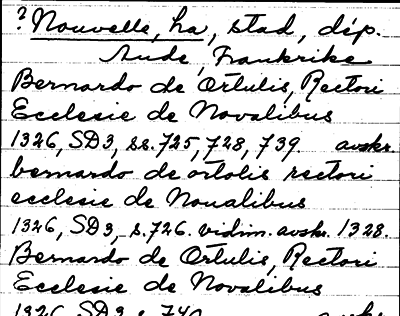 ? Nouvelle, ha, stad, dép.
Aude, Frankrike
Bernardo de Ortulis, Rectori
Ecclesie de Novalibus
1326, SD3, ss. 725, 728, 739 avskr.
bernardo de ortolis rectori
ecclesie de Noualibus
1326, SD3, s. 726. vidim. avskr. 1328.
Bernardo de Ortulis, Rectori
Ecclesie de Novalibus
1326, SD3 s. 740 avskr